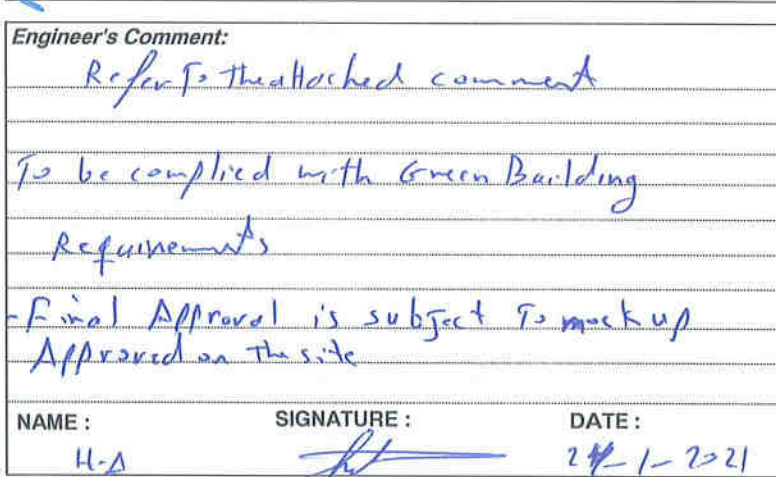 Engineer's Comment:
Refer To the attached comment
To be complied with Green Building
Requirements
- Final Approval is subject To mock up
Approved on the site
NAME : SIGNATURE : DATE :
H-A -1-2021